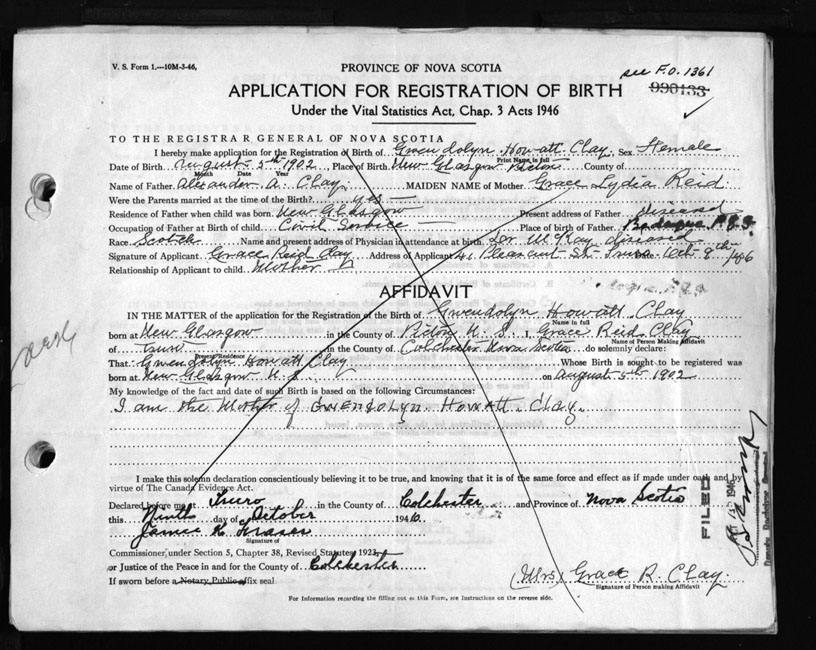 V. S. Form 1.—10M-3-46,
PROVINCE OF NOVA SCOTIA
see F.O. 1361
APPLICATION FOR REGISTRATION OF BIRTH
990133
Under the Vital Statistics Act, Chap. 3 Acts 1946
TO THE REGISTRAR GENERAL OF NOVA SCOTIA
I hereby make application for the Registration of Birth of Gwendolyn Howatt Clay Sex Female
Print Name in full
Date of Birth August 5th 1902, Place of Birth New Glasgow Pictou County of
Month Date Year
Name of Father Alexander A. Clay MAIDEN NAME of Mother Grace Lydia Reid
Were the Parents married at the time of the Birth? yes
Residence of Father when child was born New Glasgow Present address of Father
Occupation of Father at Birth of child Civil Service Place of birth of Father Bedeque P.E.I.
Race Scotch Name and present address of Physician in attendance at birth Dr McKay
Signature of Applicant Grace Reid Clay Address of Applicant 41 Pleasant St. Truro Oct 9th /46
Relationship of Applicant to child Mother
AFFIDAVIT
IN THE MATTER of the application for the Registration of the Birth of Gwendolyn Howatt Clay
Name in full
born at New Glasgow in the County of Pictou N. S. I, Grace Reid Clay
Name of Person Making Affidavit
of Truro in the County of Colchester Nova Scotia do solemnly declare:
Present Residence
That Gwendolyn Howatt Clay Whose Birth is sought to be registered was
born at New Glasgow N. S. on August 5th 1902
My knowledge of the fact and date of such Birth is based on the following Circumstances:
I am the Mother of GWENDOLYN HOWATT Clay.
I make this solemn declaration conscientiously believing it to be true, and knowing that it is of the same force and effect as if made under oath and by
virtue of The Canada Evidence Act.
Declared before me at Truro in the County of Colchester and Province of Nova Scotia
this Ninth day of October 1946.
James K. Fraser
Signature of
Commissioner, under Section 5, Chapter 38, Revised Statutes 1923,
or Justice of the Peace in and for the County of Colchester
If sworn before a Notary Public affix seal
(Mrs) Grace R. Clay.
Signature of Person making Affidavit
For Information regarding the filling out of this Form, see Instructions on the reverse side.
FILED
1946